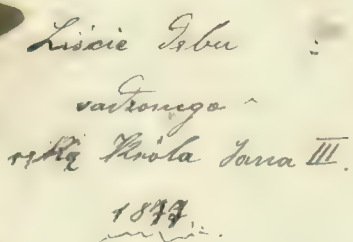 Liście Dębu
sadzonego
ręką Króla Jana III.
1877